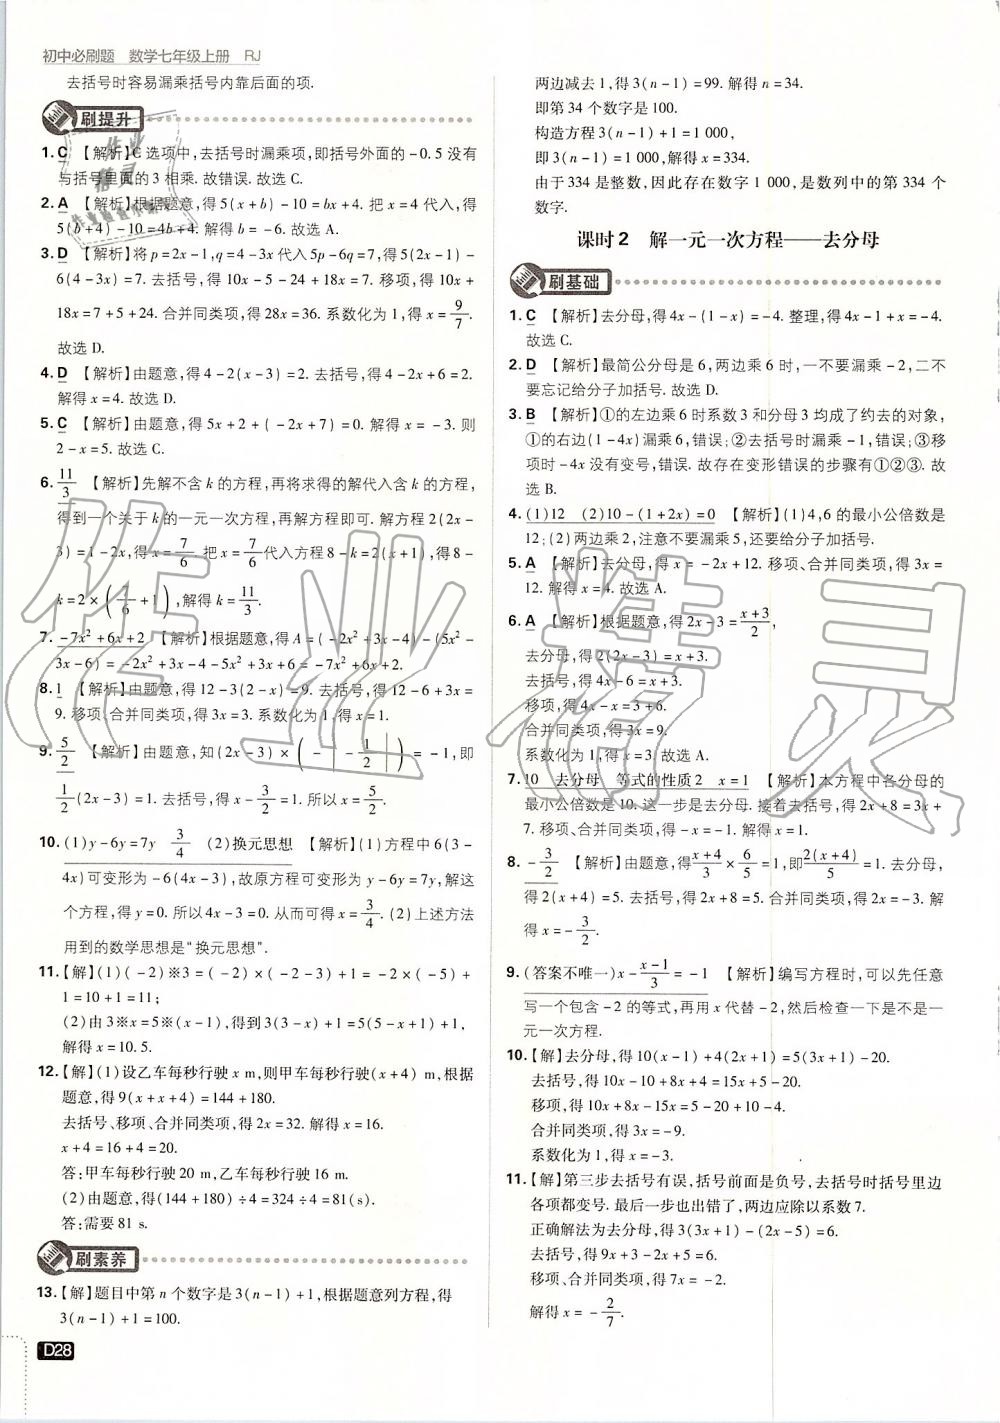 初中必刷题 数学七年级上册 RJ
去括号时容易漏乘括号内靠后面的项.
刷提升
1. C 【解析】C选项中,去括号时漏乘项,即括号外面的-0.5没有
与括号里面的3相乘.故错误.故选C.
2. A 【解析】根据题意,得5(x+b)-10=bx+4.把x=4代入,得
5(b+4)-10=4b+4.解得b=-6.故选A.
3. D 【解析】将p=2x-1,q=4-3x代入5p-6q=7,得5(2x-1)-
6(4-3x)=7.去括号,得10x-5-24+18x=7.移项,得10x+
18x=7+5+24.合并同类项,得28x=36.系数化为1,得x=9/7.
故选D.
4. D 【解析】由题意,得4-2(x-3)=2.去括号,得4-2x+6=2.
解得x=4.故选D.
5. C 【解析】由题意,得5x+2+(-2x+7)=0.解得x=-3.则
2-x=5.故选C.
6. 11/3 【解析】先解不含k的方程,再将求得的解代入含k的方程,
得到一个关于k的一元一次方程,再解方程即可.解方程2(2x-
3)=1-2x,得x=7/6.把x=7/6代入方程8-k=2(x+1),得8-
k=2×(7/6+1),解得k=11/3.
7. -7x²+6x+2 【解析】根据题意,得A=(-2x²+3x-4)-(5x²-
3x-6)=-2x²+3x-4-5x²+3x+6=-7x²+6x+2.
8. 1 【解析】由题意,得12-3(2-x)=9.去括号,得12-6+3x=
9.移项、合并同类项,得3x=3.系数化为1,得x=1.
9. 5/2 【解析】由题意,知(2x-3)×(-|-1/2|)=-1,即
1/2(2x-3)=1.去括号,得x-3/2=1.所以x=5/2.
10. (1)y-6y=7y 3/4 (2)换元思想 【解析】(1)方程中6(3-
4x)可变形为-6(4x-3),故原方程可变形为y-6y=7y,解这
个方程,得y=0.所以4x-3=0.从而可得x=3/4.(2)上述方法
用到的数学思想是"换元思想".
11.【解】(1)(-2)※3=(-2)×(-2-3)+1=-2×(-5)+
1=10+1=11;
(2)由3※x=5※(x-1),得到3(3-x)+1=5(5-x+1)+1,
解得x=10.5.
12.【解】(1)设乙车每秒行驶x m,则甲车每秒行驶(x+4) m,根据
题意,得9(x+x+4)=144+180.
去括号、移项、合并同类项,得2x=32.解得x=16.
x+4=16+4=20.
答:甲车每秒行驶20 m,乙车每秒行驶16 m.
(2)由题意,得(144+180)÷4=324÷4=81(s).
答:需要81 s.
刷素养
13.【解】题目中第n个数字是3(n-1)+1,根据题意列方程,得
3(n-1)+1=100.
D28
两边减去1,得3(n-1)=99.解得n=34.
即第34个数字是100.
构造方程3(n-1)+1=1 000,
即3(n-1)+1=1 000,解得n=334.
由于334是整数,因此存在数字1 000,是数列中的第334个
数字.
课时2 解一元一次方程——去分母
刷基础
1. C 【解析】去分母,得4x-(1-x)=-4.整理,得4x-1+x=-4.
故选C.
2. D 【解析】最简公分母是6,两边乘6时,一不要漏乘-2,二不
要忘记给分子加括号.故选D.
3. B 【解析】①的左边乘6时系数3和分母3均成了约去的对象,
①的右边(1-4x)漏乘6,错误;②去括号时漏乘-1,错误;③移
项时-4x没有变号,错误.故存在变形错误的步骤有①②③.故
选B.
4. (1)12 (2)10-(1+2x)=0 【解析】(1)4,6的最小公倍数是
12;(2)两边乘2,注意不要漏乘5,还要给分子加括号.
5. A 【解析】去分母,得x=-2x+12.移项、合并同类项,得3x=
12.解得x=4.故选A.
6. A 【解析】根据题意,得2x-3=(x+3)/2,
去分母,得2(2x-3)=x+3.
去括号,得4x-6=x+3.
移项,得4x-x=3+6.
合并同类项,得3x=9.
系数化为1,得x=3.故选A.
7. 10 去分母 等式的性质2 x=1 【解析】本方程中各分母的
最小公倍数是10.这一步是去分母.接着去括号,得2x+8=3x+
7.移项、合并同类项,得-x=-1.解得x=1.
8. -3/2 【解析】由题意,得(x+4)/3×6/5=1,即2(x+4)/5=1.去分母,
得2(x+4)=5.去括号,得2x+8=5.移项、合并同类项,得2x=-3.解
得x=-3/2.
9. (答案不唯一)x-(x-1)/3=-1 【解析】编写方程时,可以先任意
写一个包含-2的等式,再用x代替-2,然后检查一下是不是一
元一次方程.
10.【解】去分母,得10(x-1)+4(2x+1)=5(3x+1)-20.
去括号,得10x-10+8x+4=15x+5-20.
移项,得10x+8x-15x=5-20+10-4.
合并同类项,得3x=-9.
系数化为1,得x=-3.
11.【解】第三步去括号有误,括号前面是负号,去括号时括号里边
各项都变号.最后一步也出错了,两边应除以系数7.
正确解法为去分母,得3(3x+1)-2(x-2)=6.
去括号,得9x+3-2x+4=6.
移项、合并同类项,得7x=-2.
解得x=-2/7.
作业精灵